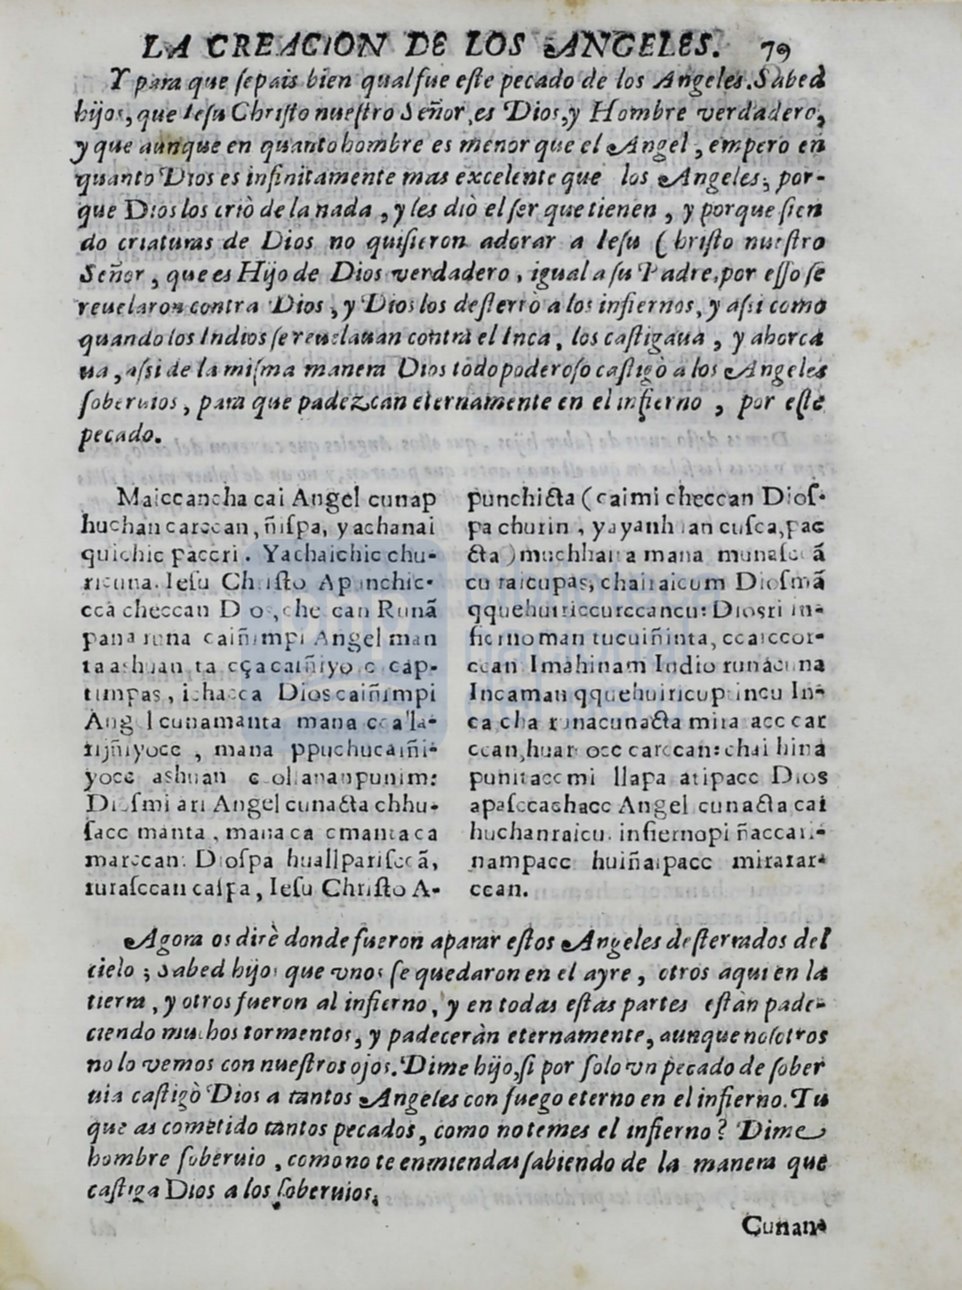 LA CREACION DE LOS ANGELES. 79
Y para que ſepais bien qual fue eſte pecado de los Angeles. Sabed
hijos, que Ieſu Chriſto nueſtro Señor, es Dios, y Hombre verdadero,
y que aunque en quanto hombre es menor que el Angel, empero en
quanto Dios es infinitamente mas excelente que los Angeles, por-
que Dios los criò de la nada, y les diò el ſer que tienen, y porque ſien
do criaturas de Dios no quiſieron adorar a Ieſu Chriſto nueſtro
Señor, que es Hijo de Dios verdadero, igual a ſu Padre, por eſſo ſe
reuelaron contra Dios, y Dios los deſterrò a los infiernos, y aſsi como
quando los Indios ſe reuelauan contra el Inca, los caſtigaua, y ahorca
ua, aſsi de la miſma manera Dios todo poderoſo caſtigò a los Angeles
ſoberuios, para que padezcan eternamente en el infierno, por eſte
pecado.
Maiccancha cai Angel cunap
huchan carccan, ñiſpa, yachanai
quichic paccri. Yachaichic chu-
ricuna. Ieſu Chriſto Apunchic-
cca checcan Dios, checcan Runã
pana runa caiñimpi Angel man
ta ashuan
tumpas, ichacca Dios caiñimpi
Angel cunamanta mana
, mana ppuchucaiñi-
yocc ashuan collananpunim:
Dioſmi ari Angel cunacta chhu-
ſacc manta, mana ca cmantaca
marccan. Dioſpa huallpariſccã,
ruraſccan caſpa, Ieſu Chriſto A-
punchicta (caimi checcan Dioſ-
pa churin, yayanhuan cuſca, pac
cta) muchhana mana munaſccã
cu raicupas, chairaicum Dioſmã
qquehuiriccurccancu: Dioſri in-
fiernoman tucuiñinta, ccarccor-
ccan Imahinam Indio runacuna
Incaman qquehuiricup incu In-
ca cha runacunacta mita acc car
ccan, huar occ carccan: chai hina
punitaccmi llapa atipacc Dios
apaſccachacc Angel cunacta cai
huchanraicu. infiernopi ñaccari-
nampacc huiñaipacc mirarar-
ccan.
Agora os dirè donde fueron aparar eſtos Angeles deſterrados del
cielo; Sabed hijos que vnos ſe quedaron en el ayre, otros aqui en la
tierra, y otros fueron al infierno, y en todas eſtas partes eſtàn pade-
ciendo muchos tormentos, y padeceràn eternamente, aunque noſotros
no lo vemos con nueſtros ojos. Dime hijo, ſi por ſolo vn pecado de ſober
uia caſtigò Dios a tantos Angeles con fuego eterno en el infierno. Tu
que as cometido tantos pecados, como no temes el infierno? Dime
hombre ſoberuio, como no te enmiendas ſabiendo de la manera que
caſtiga Dios a los ſoberuios.
Cunan-